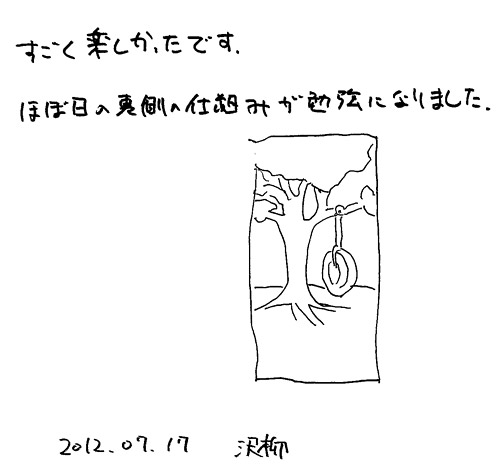 すごく楽しかったです.
ほぼ日の裏側の仕組みが勉強になりました.
2012.07.17 沢柳